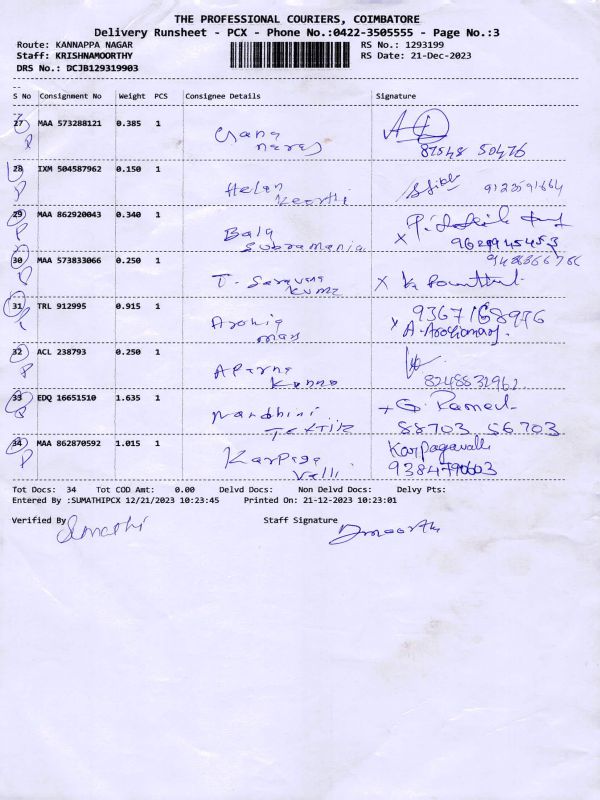 THE PROFESSIONAL COURIERS, COIMBATORE
Delivery Runsheet - PCX - Phone No.:0422-3505555 - Page No.:3
Route: KANNAPPA NAGAR RS No.: 1293199
Staff: KRISHNAMOORTHY RS Date: 21-Dec-2023
DRS No.: DCJB129319903
S No Consignment No Weight PCS Consignee Details Signature
27 MAA 573288121 0.385 1
87548 50476
28 IXM 504587962 0.150 1 Helen
Keerthi
29 MAA 862920043 0.340 1 Bala
Subramania
30 MAA 573833066 0.250 1 T. Saravana
Kumar
31 TRL 912995 0.915 1 Arokia 9367168976
mary A. Arokiamary.
32 ACL 238793 0.250 1 Aparna
33 EDQ 16651510 1.635 1 Nandhini G. Ramesh
Textile 88703 56703
34 MAA 862870592 1.015 1 Karpaga Karpagavalli
Valli 9384790603
Tot Docs: 34 Tot COD Amt: 0.00 Delvd Docs: Non Delvd Docs: Delvy Pts:
Entered By :SUMATHIPCX 12/21/2023 10:23:45 Printed On: 21-12-2023 10:23:01
Verified By Sumathi Staff Signature